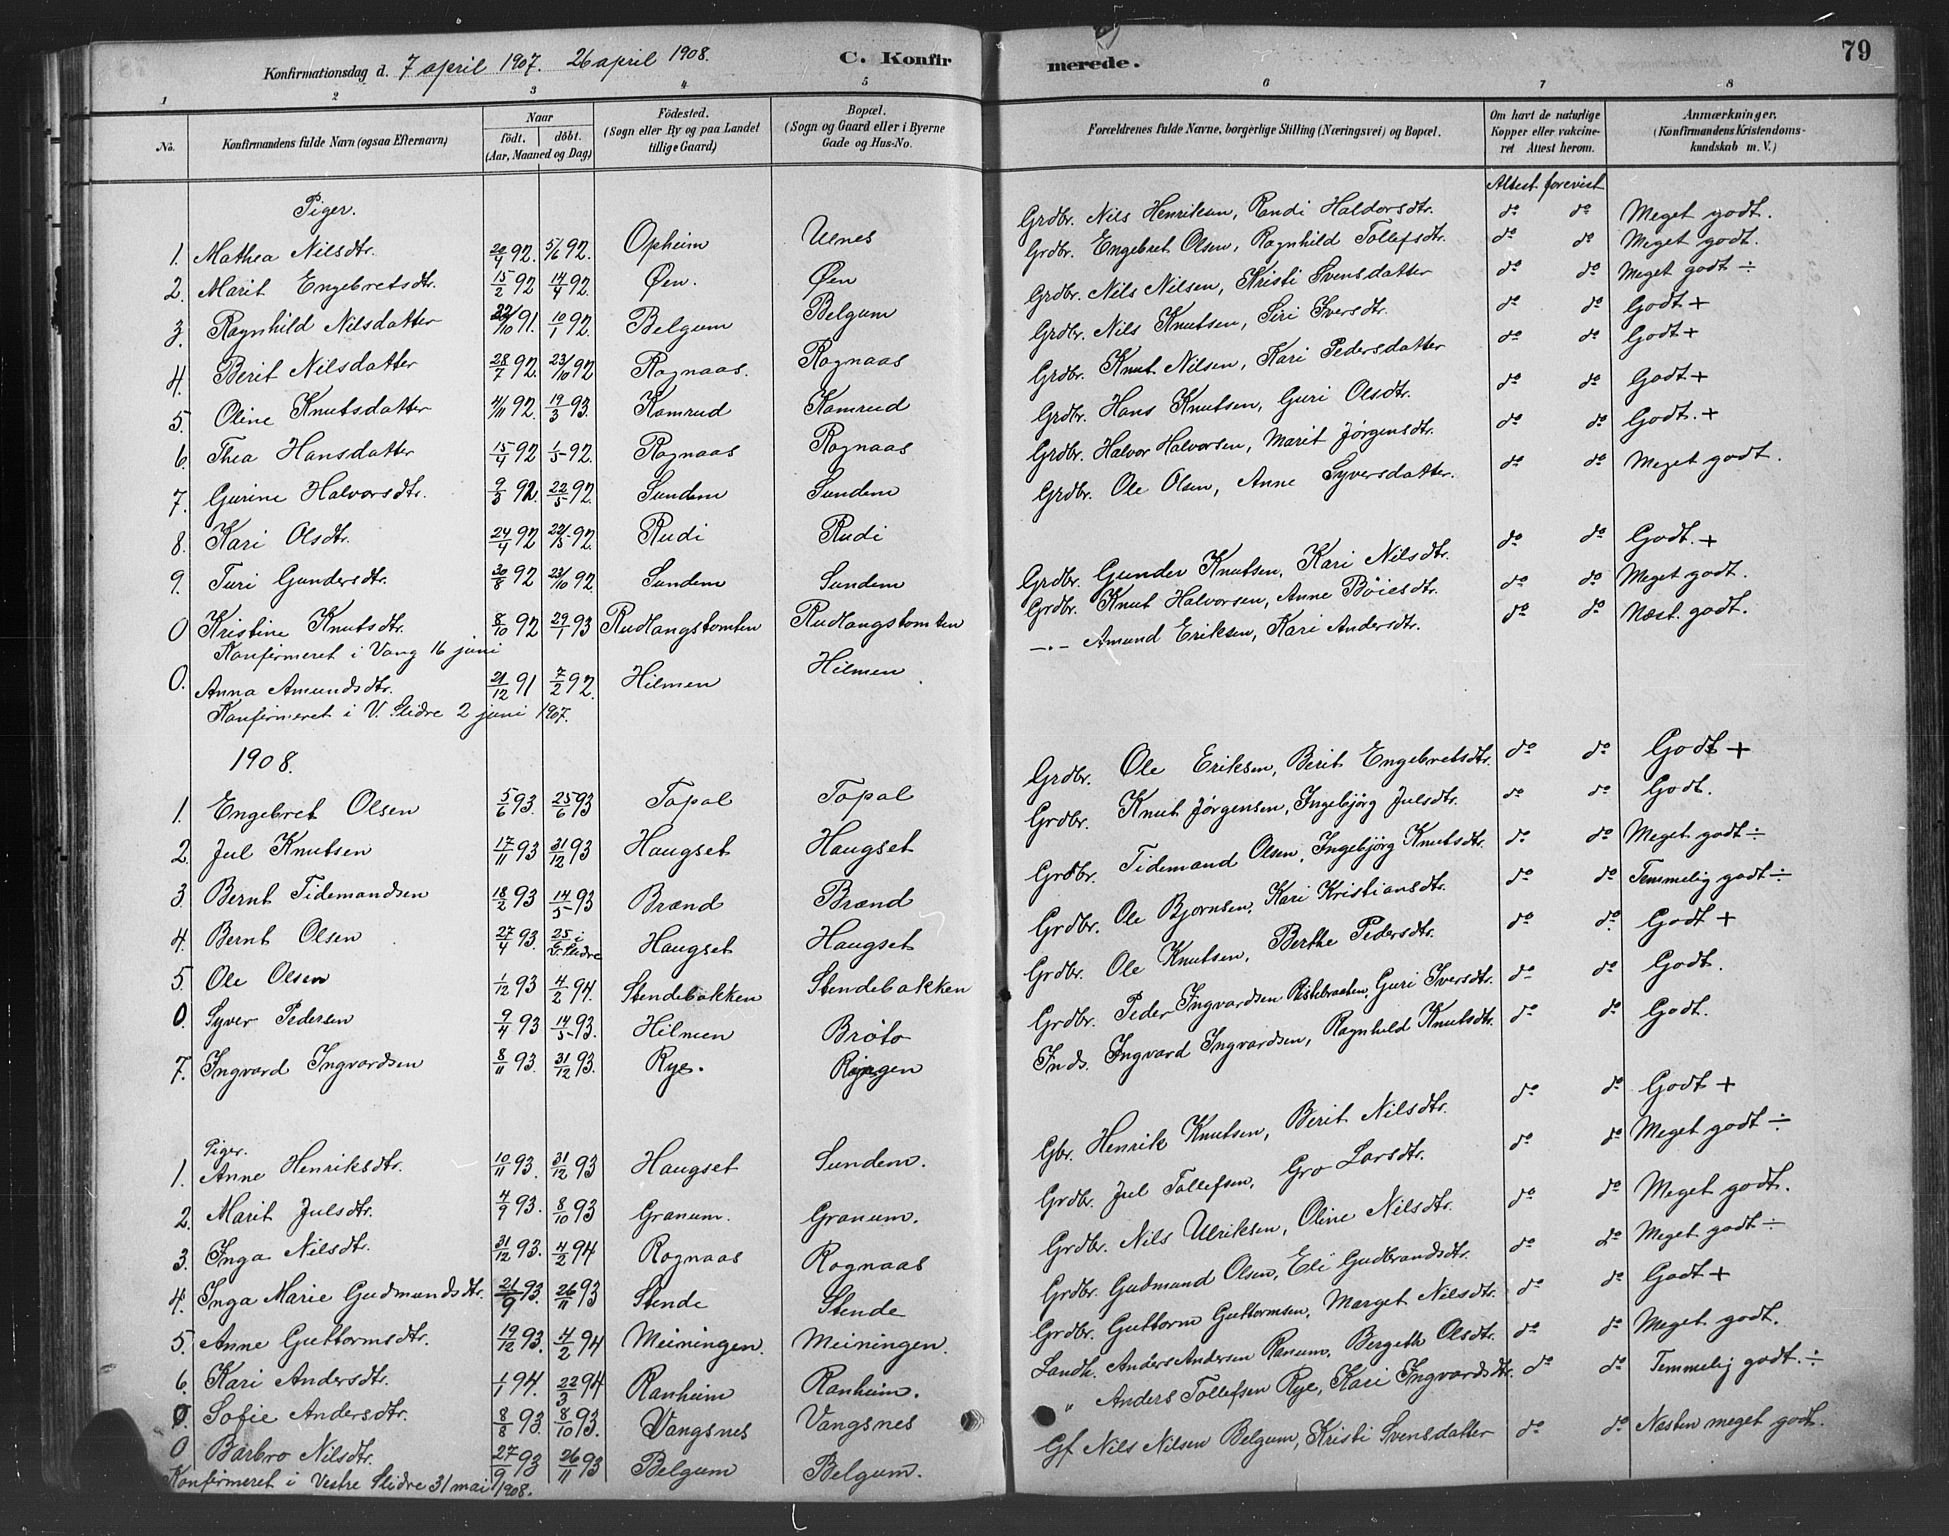 Konfirmationsdag d. 7 april 1907. 26 april 1908. C. Konfirmerede. 79
1 2 3 4 5 6 7 8
No. Konfirmandens fulde Navn (ogsaa Efternavn) Naar födt. döbt. (Aar, Maaned og Dag) Födested. (Sogn eller By og paa Landet tillige Gaard) Bopæl. (Sogn og Gaard eller i Byerne Gade og Hus-No. Forældrenes fulde Navne, borgerlige Stilling (Næringsvei) og Bopæl. Om havt de naturlige Kopper eller vakcineret Attest herom. Anmærkninger. (Konfirmandens Kristendomskundskab m. V.)
Piger. Attest forevist
1. Mathea Nilsdtr. 20/4 92. 5/6 92. Opheim Ulnes Grdbr. Nils Henriksen, Randi Haldorsdtr. do do Meget godt.
2. Marit Engebretsdtr. 15/2 92 14/4 92. Øen. Øen Grdbr. Engebret Olsen, Ragnhild Tollefsdtr. do do Meget godt.
3. Ragnhild Nilsdatter 22/10 91. 10/1 92. Belgum Belgum Grdbr. Nils Nilsen, Kristi Svensdatter do do Meget godt ÷
4. Berit Nilsdatter 28/7 92. 23/10 92 Rognaas. Rognaas Grdbr. Nils Knutsen, Siri Iversdtr. do do Godt +
5. Oline Knutsdatter 4/11 92. 19/3 93. Kamrud Kamrud Grdbr. Knut Nilsen, Kari Pedersdatter do do Godt +
6. Thea Hansdatter 15/4 92 1/5 92. Rognaas Rognaas Grdbr. Hans Knutsen, Guri Olsdtr. do do Godt +
7. Gurine Halvorsdtr. 9/3 92. 22/5 92. Sundem Sundem Grdbr. Halvor Halvorsen, Marit Jørgensdtr. do do Godt. +
8. Kari Olsdtr. 24/4 92 22/5 92. Rudi Rudi Grdbr. Ole Olsen, Anne Syversdatter. do do Meget godt.
9. Turi Gundersdtr. 30/8 92 23/10 92. Sundem Sundem Grdbr. Gunder Knutsen, Kari Nilsdtr. do do Godt. +
0 Kristine Knutsdtr. 8/10 92 29/1 93 Rudlangstomten Rudlangstomten Grdbr. Knut Halvorsen, Anne Bøiesdtr. do do Meget godt.
Konfirmeret i Vang 16 juni
0. Anna Amundsdtr. 21/12 91 7/2 92. Hilmen Hilmen —.— Amund Eriksen, Kari Andersdtr. do do Næst. godt.
Konfirmeret i V. Slidre 2 juni 1907.
1908.
1. Engebret Olsen 5/6 93. 25/6 93 Topal Topal Grdbr. Ole Eriksen, Berit Engebretsdtr. do do Godt +
2. Jul Knutsen 17/11 93 31/12 93 Haugset Haugset Grdbr. Knut Jørgensen, Ingebjørg Julsdtr. do do Godt.
3 Bernt Tidemandsen 18/2 93 14/5 93 Brænd Brænd Grdbr. Tidemand Olsen, Ingebjørg Knutsdtr. do do Meget godt ÷
4. Bernt Olsen 27/4 93. 25 i Slidre Haugset Haugset Grdbr. Ole Bjornsen, Kari Kristiansdtr. do do Temmelig godt ÷
5. Ole Olsen 1/12 93 4/2 94. Stendebakken Stendebakken Grdbr. Ole Knutsen, Berthe Pedersdtr. do do Godt +
0. Syver Pedersen 9/4 93 14/5 93. Hilmen Brøto Grdbr. Peder Ingvardsen Ristebraaten, Guri Iversdtr. do do Godt.
7. Ingvard Ingvardsen 8/11 93. 31/12 93. Rye. Ringen Inds. Ingvard Ingvardsen, Ragnhild Knutsdtr. do do Godt.
Piger.
1. Anne Henriksdtr. 10/11 93. 31/12 93 Haugset Sundem. Gbr. Henrik Knutsen, Berit Nilsdtr. do do Godt +
2. Marit Julsdtr. 4/9 93. 8/10 93 Granum. Granum. Grdbr. Jul Tollefsen, Gro Larsdtr. do do Meget godt ÷
3. Inga Nilsdtr. 31/12 93. 4/2 94 Rognaas Rognaas Grdbr. Nils Ulriksen, Oline Nilsdtr. do do Meget godt.
4. Inga Marie Gudmundsdtr. 21/9 93. 26/11 93 Stende Stende Grdbr. Gudmund Olsen, Eli Gudbrandsdtr. do do Meget godt ÷
5. Anne Guttormsdtr. 19/12 93. 4/2 94 Meiningen. Meiningen. Grdbr. Guttorm Guttormsen, Marget Nilsdtr. do do Godt +
6. Kari Andersdtr. 1/1 94. 22/3 94 Ranheim Ranheim. Landh. Anders Andersen Ranum, Bergith Olsdtr. do do Meget godt.
0. Sofie Andersdtr. 8/8 93. 8/10 93. Vangsnes Vangsnes " Anders Tollefsen Rye, Kari Ingvardsdtr. do do Temmelig godt. ÷
0 Barbro Nilsdtr. 27/9 93 26/11 93 Belgum Belgum. Gf Nils Nilsen Belgum, Kristi Svensdatter do do Næsten meget godt.
Konfirmeret i Vestre Slidre 31 mai 1908.